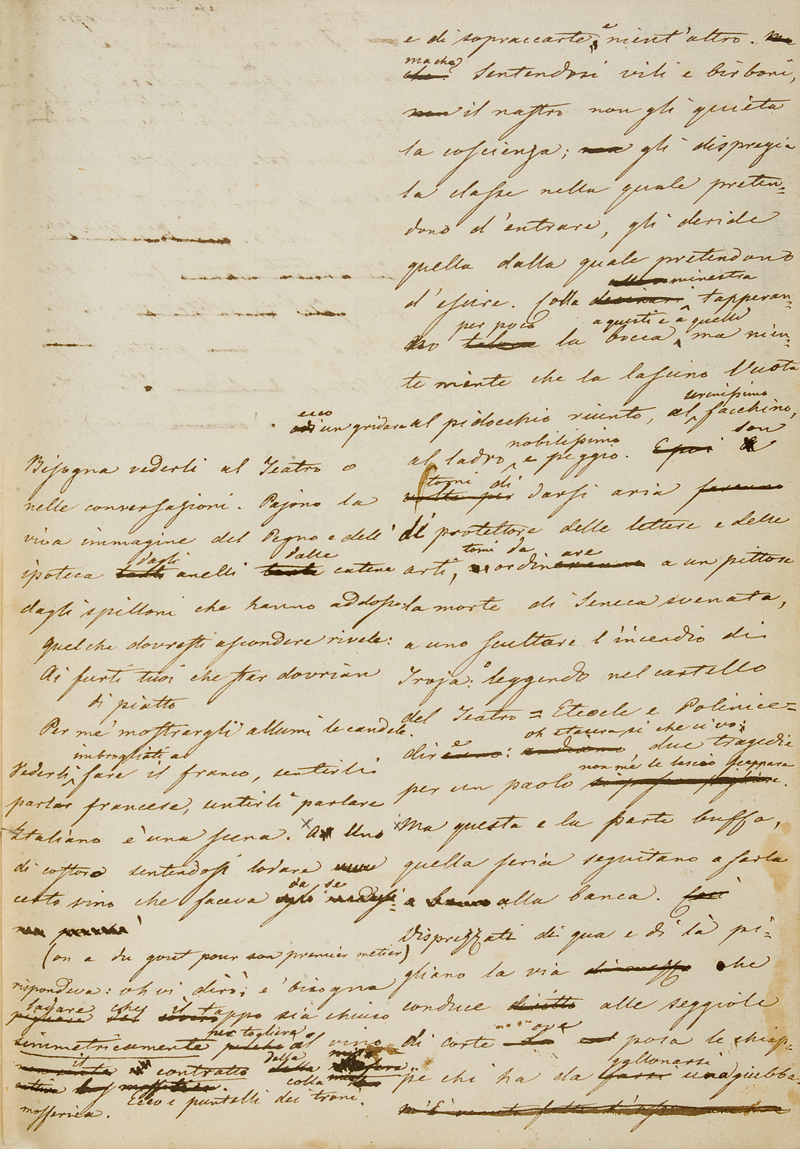 e di sopraccarte, e nient'altro.
ma che? sentendosi vili e birboni,
il nastro non gli quieta
la coscienza; gli dispregia
la classe nella quale preten-
dono d'entrare, gli deride
quella dalla quale pretendono
d'escire. Colla minestra tapperan-
no per poco la bocca a questi e a quelli, ma nien-
te mente che la lascino vuota
ecco un gridare al pidocchio riunto, al serenissimo facchino,
al ladro nobilissimo e peggio. son
tomi di darsi aria
di protettore delle lettere e delle
arti, tomi da ordinare a un pittore
la morte di Seneca svenata,
a uno scultore l'incendio di
Troja: o leggendo nel cartello
del Teatro = Eteocle e Polinice =
dire: oh stasera sì che ci vo: due tragedie
per un paolo non me le lascio scappare
Ma questa è la parte buffa,
quella seria seguitano a farla
alla banca.
Disprezzati di qua e di là pi-
gliano la via che
conduce alle seggiole
di corte ove posa le chiap-
pe chi ha da gallonarsi una giubba
Bisogna vederli al Teatro o
nelle conversazioni. Pajono la
viva immagine del Pegno e dell'
ipoteca dagli anelli dalle catene
dagli spilloni che hanno addosso
Quel che dovresti ascondere rivele:
Ai furti tuoi che star dovrian
di piatto
Per me' mostrargli allumi le candele.
Vederli imbrogliati a fare il franco, sentirli
parlar francese, sentirli parlare
Italiano è una scena. Uno
di costoro sentendosi lodare
certo vino che faceva da se
(on a du gout pour son premier metier)
rispondeva: oh vi dirò; e' bisogna
badare che il tappo sia chiuso
simmetricamente per togliere al vino
il contratto dalla
colla
mofferica. Ecco e puntelli dei troni.